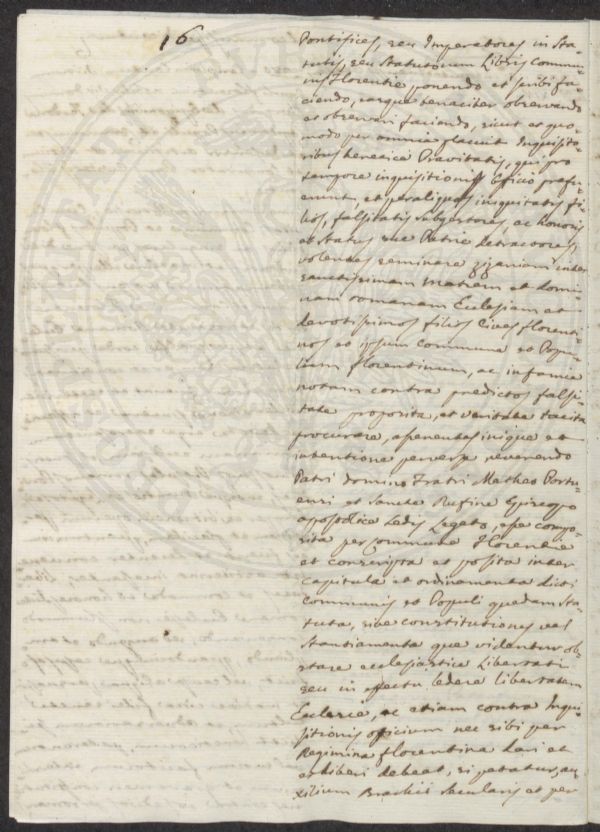 16
Pontifices, seu Imperatores in Sta-
tutis, seu Statutorum Libris Commu-
nis Florentie ponendo et scribi fa-
ciendo, eaque tenaciter observando
et observari faciendo, sicut et quo-
modo per omnia placuit Inquisito-
ribus heretice Pravitatis, qui pro
tempore inquisitionis Officio prefu-
erunt, et per aliquos iniquitatis fi-
lios, falsitatis subgestores, ac honoris
et Status sue Patrie detractores
volentes seminare zizaniam inter
sanctissimam Matrem et Domi-
nam romanam Eclesiam et
devotissimos filios Cives florenti-
nos et ipsum commune et Popu-
lum florentinum, ac infamie
notam contra predictos falsi-
tate proposita, et veritate tacita
procurare, asserentes inique et
intentione perversa reverendo
Patri domino Fratri Matheo Portu-
ensi et Sancte Rufine Episcopo
apostolice Sedis Legato, esse compo-
sita per commune Florentie
et conscripta et posita inter
capitula et ordinamenta dicti
communis et Populi quedam Sta-
tuta, sive constitutiones vel
Stantiamenta que videntur ob-
stare ecclesiastice Libertati
seu in effectu ledere libertatem
Eclesie, ac etiam contra Inqui-
sitionis officium nec sibi per
Regimina florentina dari et
exhiberi debeat, si petatur, au-
xilium Brachii Secularis et per